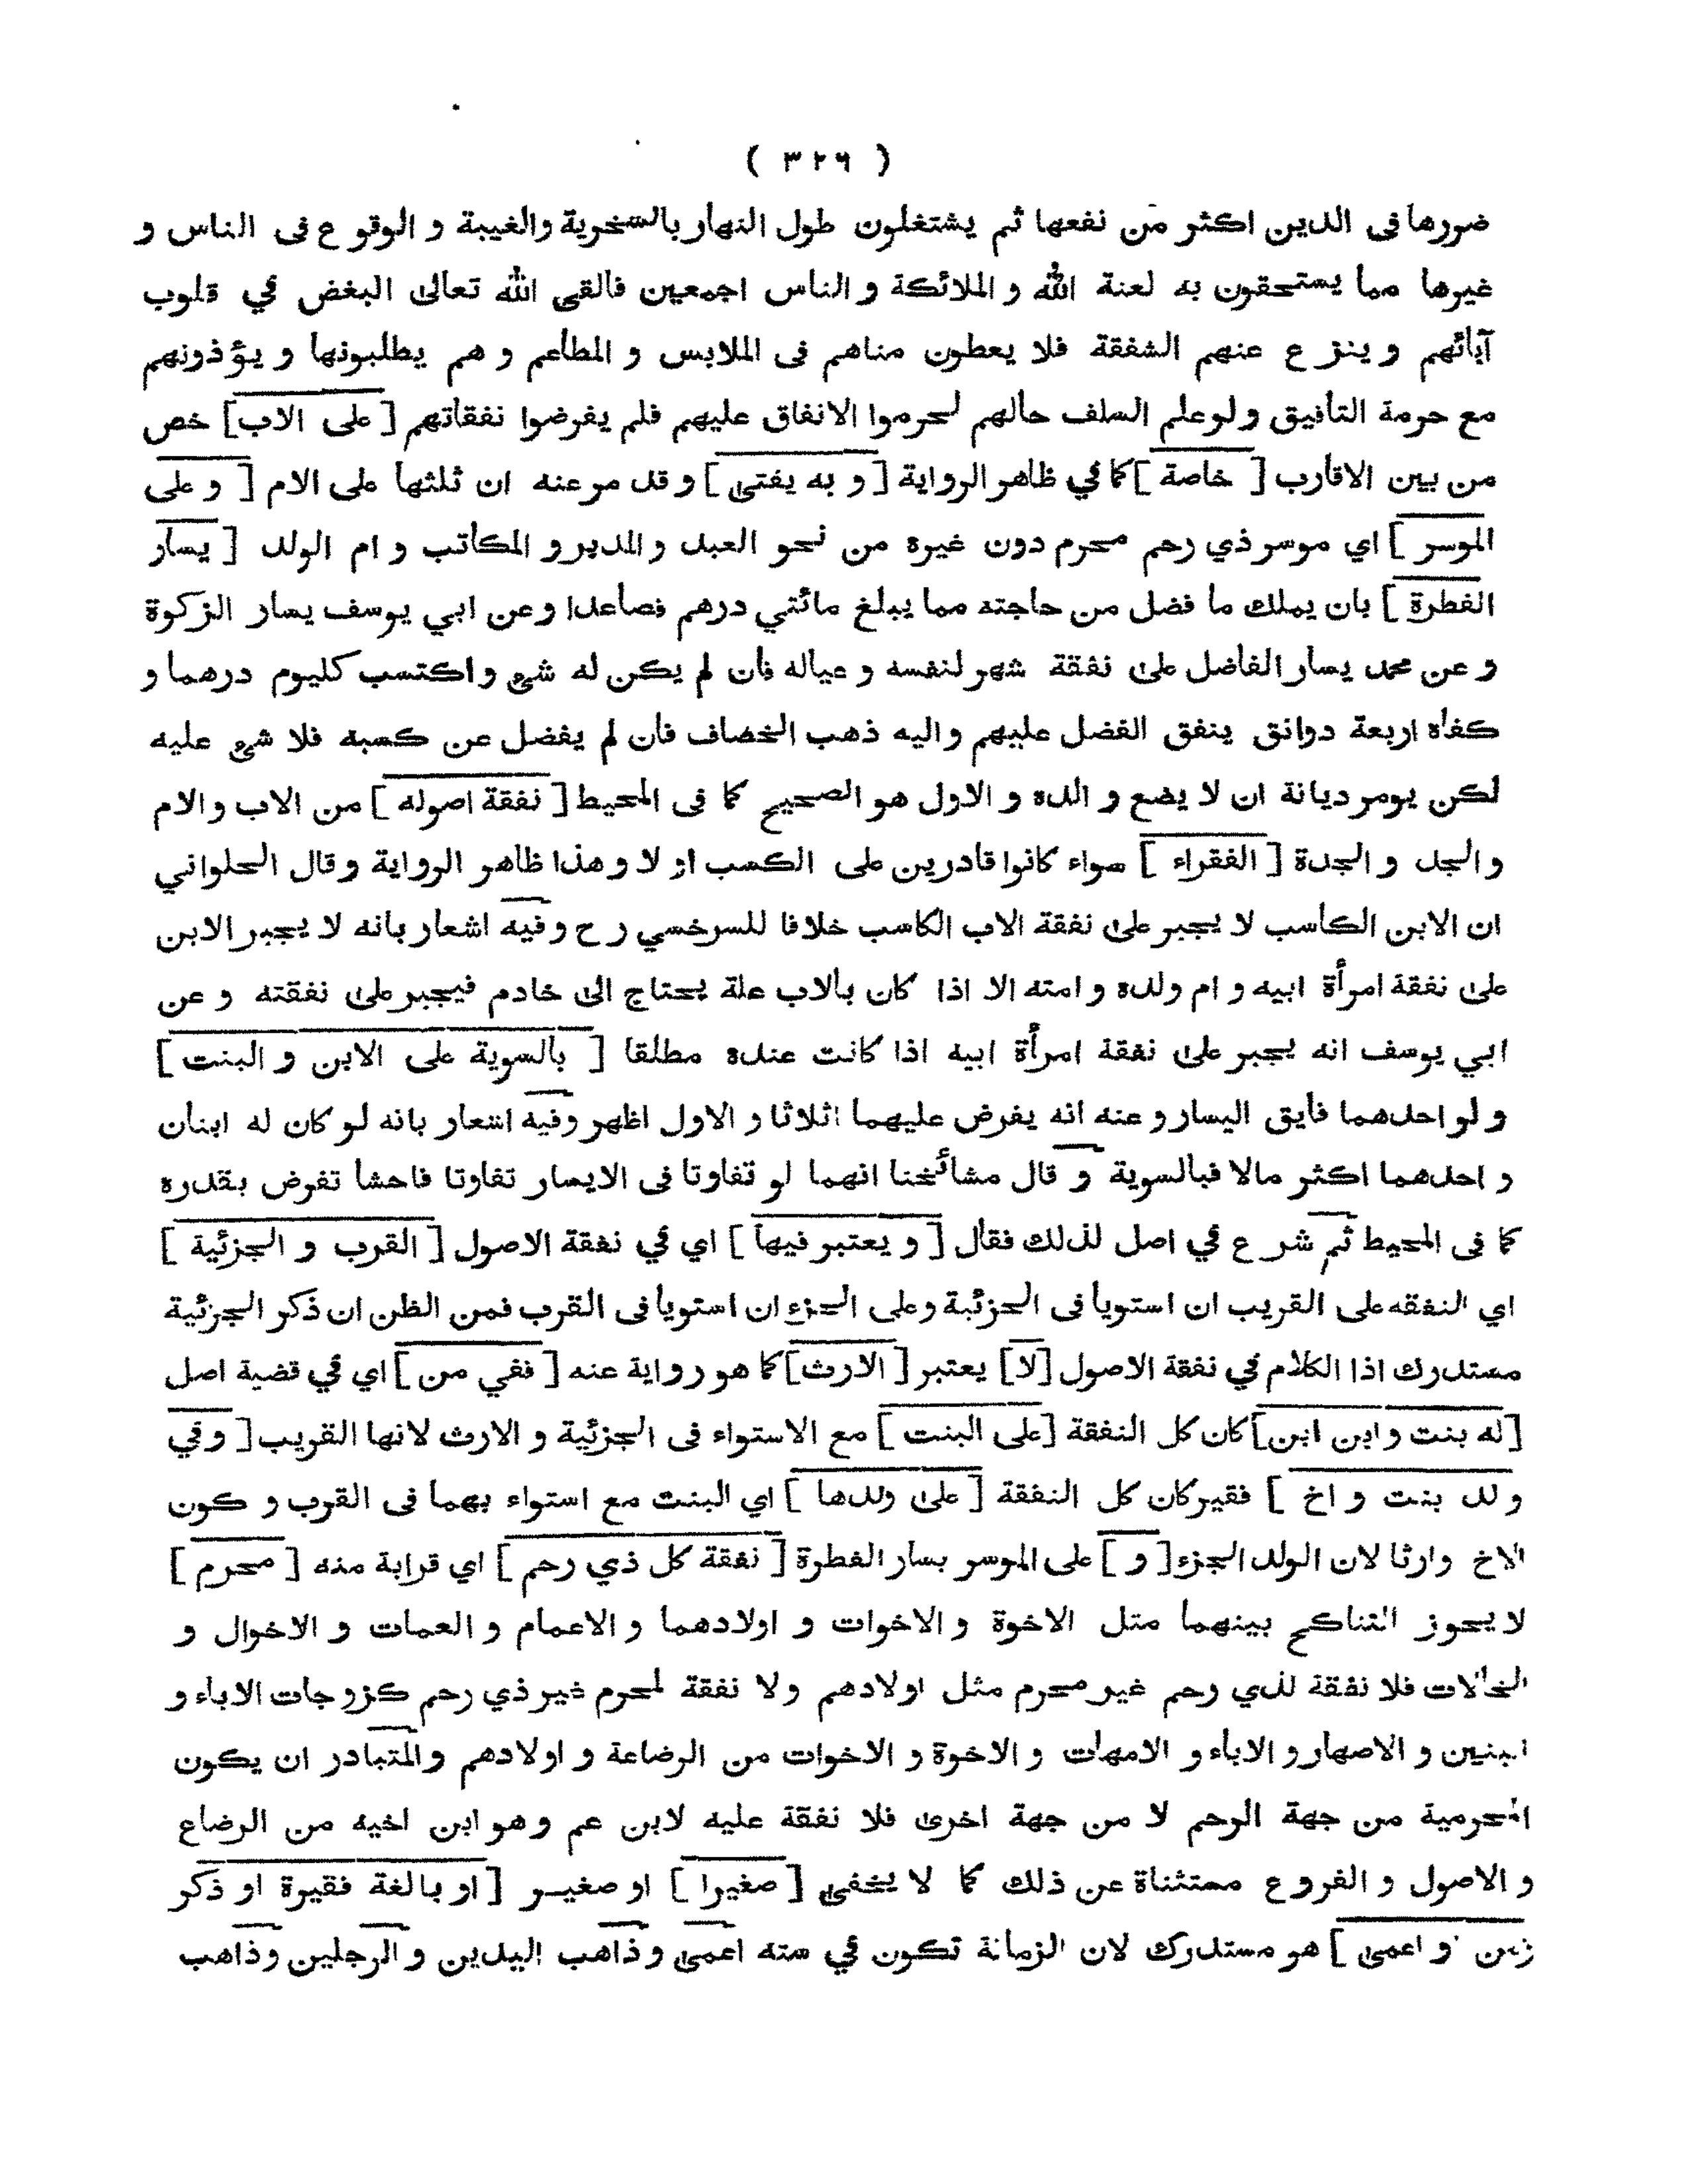 ( ٣٢٦ )
ضررها فى الدين اكثر من نفعها ثم يشتغلون طول النهار بالسخرية والغيبة و الوقوع فى الناس و
غيرها مما يستحقون به لعنة الله و الملائكة و الناس اجمعين فالقى الله تعالى البغض في قلوب
آبائهم و ينزع عنهم الشفقة فلا يعطون مناهم فى الملابس و المطاعم و هم يطلبونها و يؤذونهم
مع حرمة التأفيق ولوعلم السلف حالهم لحرموا الانفاق عليهم فلم يفرضوا نفقاتهم [ على الاب] خص
من بين الاقارب [ خاصة ] كما في ظاهر الرواية [ و به يفتى ] و قد مرعنه ان ثلثها على الام [ و على
الموسر ] اي موسر ذي رحم محرم دون غيره من نحو العبد والمدبر و المكاتب و ام الولد [ يسار
الفطرة ] بان يملك ما فضل من حاجته مما يبلغ مائتي درهم فصاعدا وعن ابي يوسف يسار الزكوة
و عن محمد يسار الفاضل على نفقة شهر لنفسه و عياله فان لم يكن له شئ و اكتسب كليوم درهما و
كفاه اربعة دوانق ينفق الفضل عليهم واليه ذهب الخصاف فان لم يفضل عن كسبه فلا شئ عليه
لكن يومر ديانة ان لا يضع و الده و الاول هو الصحيح كما فى المحيط [ نفقة اصوله ] من الاب و الام
و الجد و الجدة [ الفقراء ] سواء كانوا قادرين على الكسب او لا و هذا ظاهر الرواية وقال الحلواني
ان الابن الكاسب لا يجبر على نفقة الاب الكاسب خلافا للسرخسي رح وفيه اشعار بانه لا يجبر الابن
على نفقة امرأة ابيه و ام ولده و امته الا اذا كان بالاب علة يحتاج الى خادم فيجبر على نفقته و عن
ابي يوسف انه يجبر على نفقة امرأة ابيه اذا كانت عنده مطلقا [ بالسوية على الابن و البنت ]
و لو احدهما فايق اليسار و عنه انه يفرض عليهما اثلاثا و الاول اظهر وفيه اشعار بانه لو كان له ابنان
و احدهما اكثر مالا فبالسوية و قال مشائخنا انهما لو تفاوتا فى الايسار تفاوتا فاحشا تفرض بقدره
كما فى المحيط ثم شرع في اصل لذلك فقال [ و يعتبر فيها ] اي في نفقة الاصول [ القرب و الجزئية ]
اي النفقه على القريب ان استويا فى الجزئية وعلى الجزء ان استويا فى القرب فمن الظن ان ذكر الجزئية
مستدرك اذا الكلام في نفقة الاصول [لا] يعتبر [ الارث] كما هو رواية عنه [ ففي من ] اي في قضية اصل
[له بنت و ابن ابن] كان كل النفقة [على البنت ] مع الاستواء فى الجزئية و الارث لانها القريب [ وفي
ولد بنت و اخ ] فقير كان كل النفقة [ على ولدها ] اي البنت مع استواء بهما فى القرب و كون
الاخ وارثا لان الولد الجزء [ و ] على الموسر يسار الفطرة [ نفقة كل ذي رحم ] اي قرابة منه [ محرم ]
لا يجوز التناكح بينهما مثل الاخوة و الاخوات و اولادهما و الاعمام و العمات و الاخوال و
الخالات فلا نفقة لذي رحم غير محرم مثل اولادهم ولا نفقة لمحرم غير ذي رحم كزوجات الاباء و
البنين و الاصهار و الاباء و الامهات و الاخوة و الاخوات من الرضاعة و اولادهم والمتبادر ان يكون
المحرمية من جهة الرحم لا من جهة اخرى فلا نفقة عليه لابن عم وهو ابن اخيه من الرضاع
و الاصول و الفروع مستثناة عن ذلك كما لا يخفى [ صغيرا ] او صغير [ او بالغة فقيرة او ذكر
زمن او اعمى ] هو مستدرك لان الزمانة تكون في سته اعمى وذاهب اليدين و الرجلين وذاهب